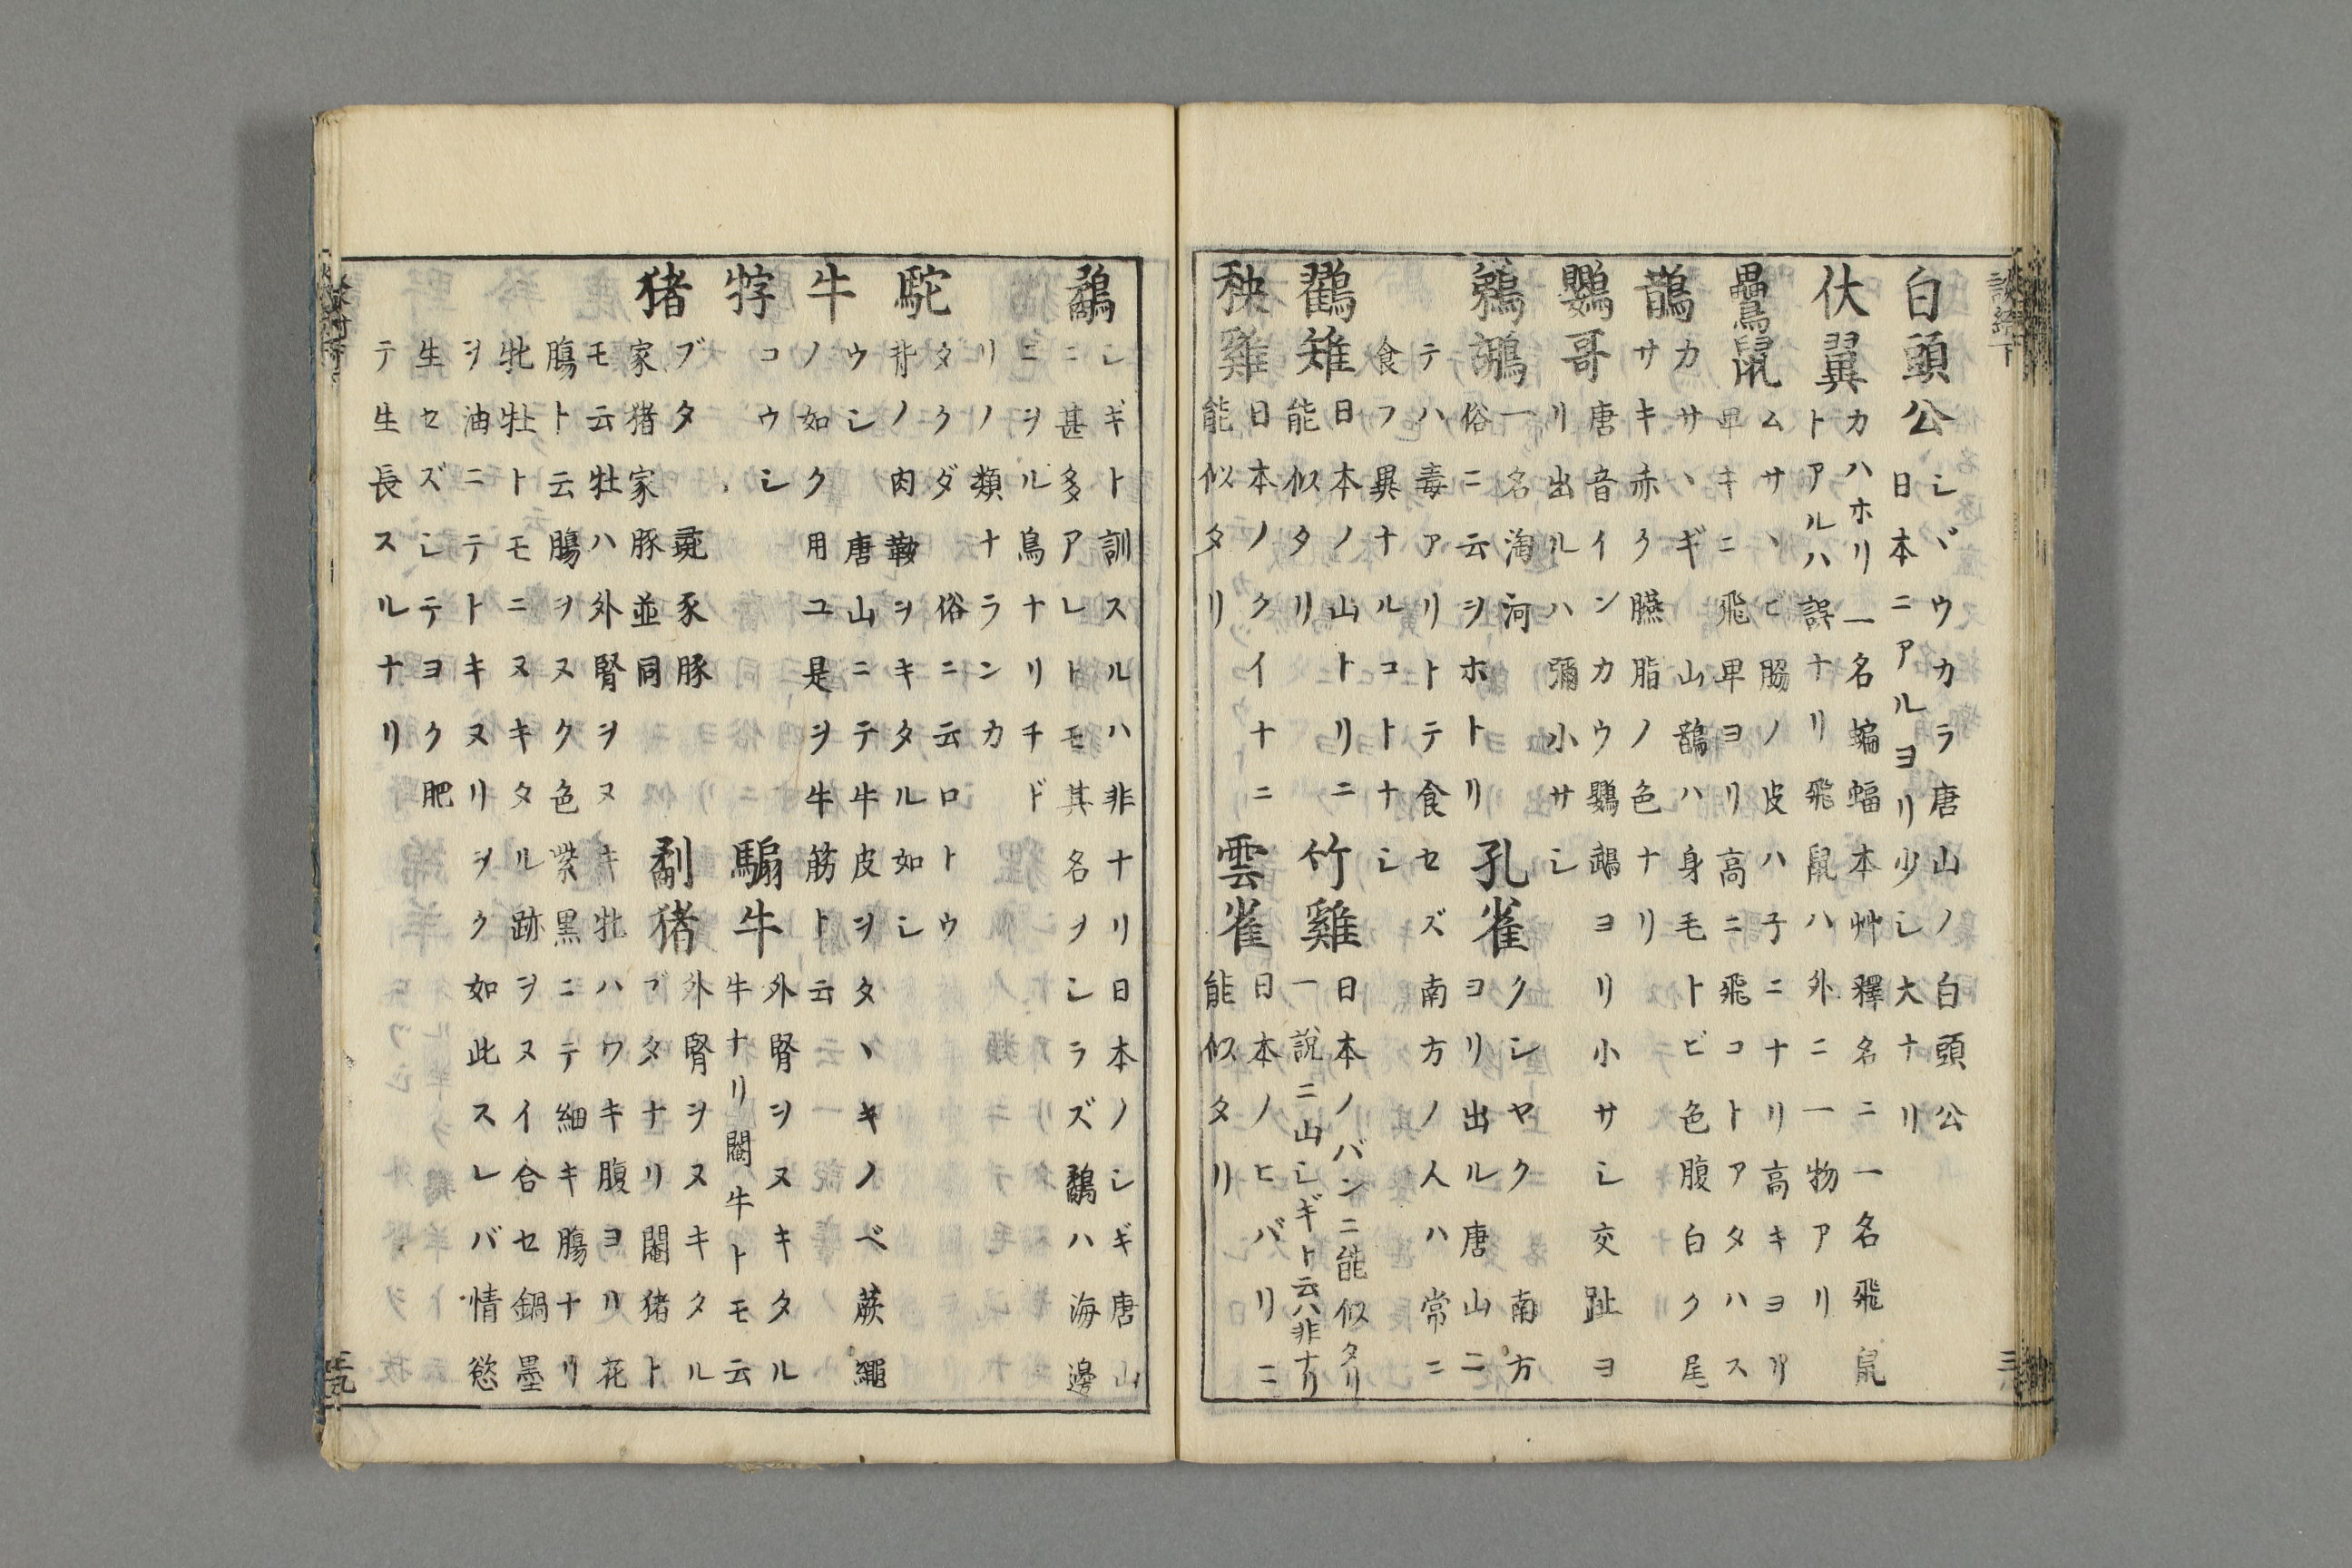 談綺下
白頭公
シヾウカラ唐山ノ白頭公
日本ニアルヨリ少シ大ナリ
伏翼
カハホリ一名蝙蝠本艸釋名ニ一名飛鼠
トアルハ誤ナリ飛鼠ハ外ニ一物アリ
鸓鼠
ムサヽビ脇ノ皮ハ子ニナリ高キヨリ
卑キニ飛卑ヨリ高ニ飛コトアタハス
鵲
カサヽギ山鵲ハ身毛トビ色腹白ク尾
サキ赤ク臙脂ノ色ナリ
鸚哥
唐音インカウ鸚鵡ヨリ小サシ交趾ヨ
リ出ルハ彌小サシ
鵜鶘
一名淘河
俗ニ云ヲホトリ
孔雀
クシヤク南方
ヨリ出ル唐山ニ
テハ毒アリトテ食セズ南方ノ人ハ常ニ
食フ異ナルコトナシ
鸐雉
日本ノ山トリニ
能似タリ
竹雞
日本ノバンニ能似タリ
一説ニ山シギト云ハ非ナリ
秧雞
日本ノクイナニ
能似タリ
雲雀
日本ノヒバリニ
能似タリ
鷸
シギト訓スルハ非ナリ日本ノシギ唐山
ニ甚多アレトモ其名ヲシラズ鷸ハ海邊
ニヲル鳥ナリチド
リノ類ナランカ
駝
タクダ俗ニ云ロトウ
背ノ肉鞍ヲキタル如シ
牛
ウシ唐山ニテ牛皮ヲタヽキノベ蕨繩
ノ如ク用ユ是ヲ牛筋ト云
牸
コウシ
騸牛
外腎ヲヌキタル
牛ナリ閹牛トモ云
猪
ブタ彘豕豚
家猪家豚並同
猪
外腎ヲヌキタル
ブタナリ閹猪ト
モ云牡ハ外腎ヲヌキ牝ハワキ腹ヨリ花
膓ト云膓ヲヌク色紫黒ニテ細キ膓ナリ
牝牡トモニヌキタル跡ヲヌイ合セ鍋墨
ヲ油ニテトキヌリヲク如此スレバ情慾
生セズシテヨク肥
テ生長スルナリ